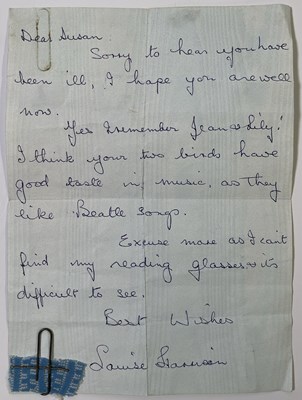 Dear Susan
Sorry to hear you have
been ill, I hope you are well
now.
Yes I remember Jean & Lily!
I think your two birds have
good taste in music, as they
like Beatle songs.
Excuse more as I can't
find my reading glasses & its
difficult to see.
Best Wishes
Louise Harrison